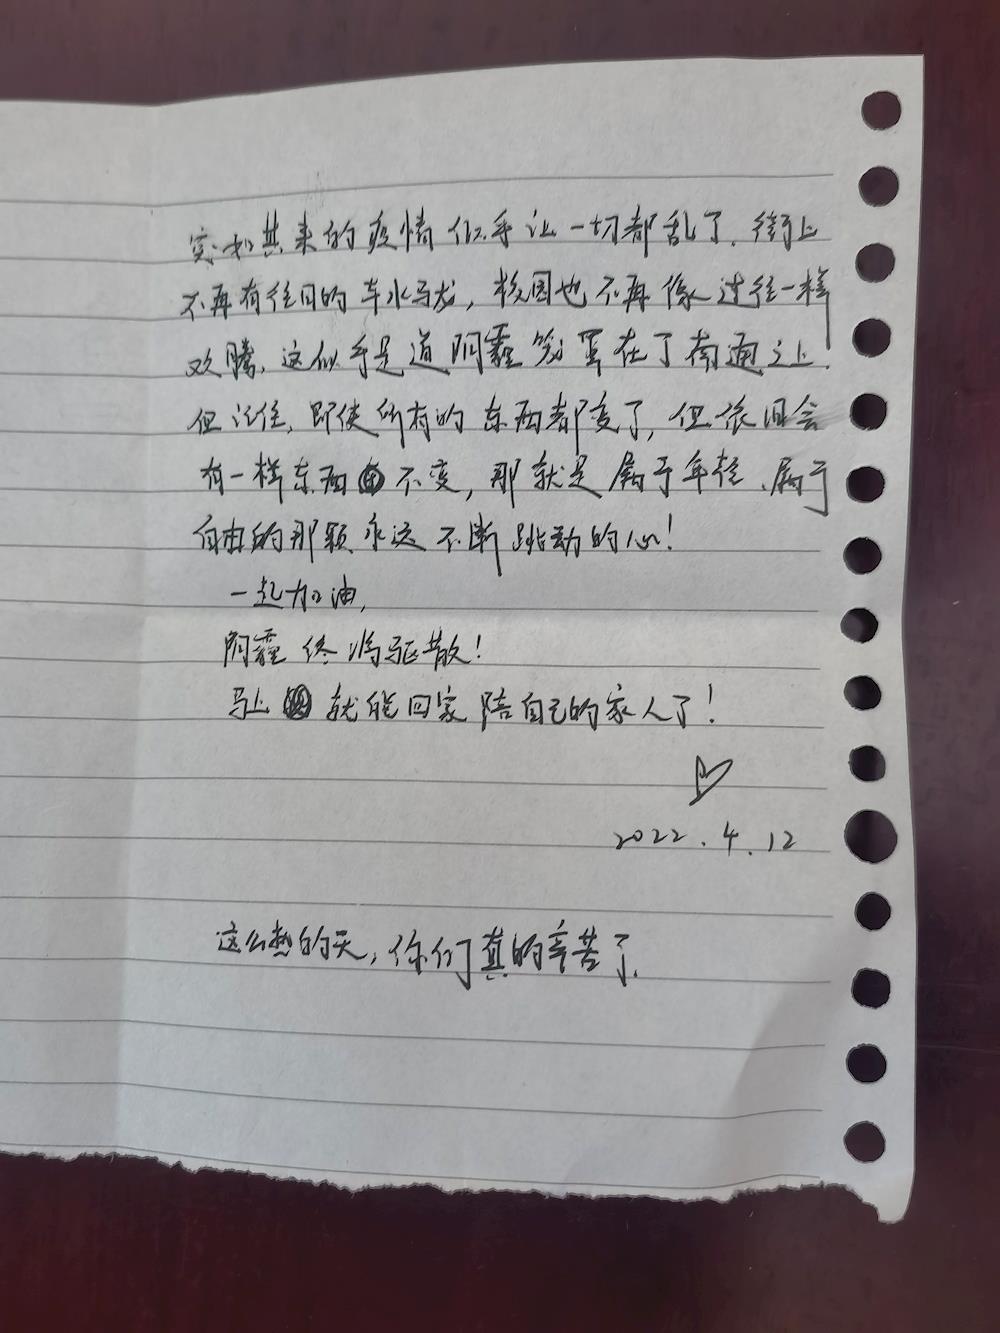 突如其来的疫情似乎让一切都乱了.街上
不再有往日的车水马龙,校园也不再像过往一样
欢腾,这似乎是道阴霾笼罩在了南通之上.
但记住,即使所有的东西都变了,但依旧会
有一样东西不变,那就是属于年轻、属于
自由的那颗永远不断跳动的心!
一起加油,
阴霾终将驱散!
马上就能回家陪自己的家人了!
2022.4.12
这么热的天,你们真的辛苦了.